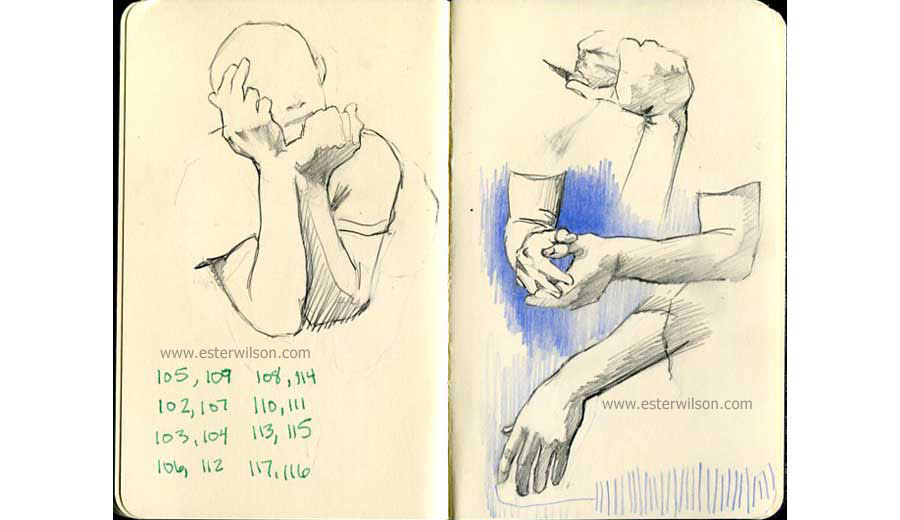 www.esterwilson.com
105, 109 108, 114
102, 107 110, 111
103, 104 113, 115
106, 112 117, 116
www.esterwilson.com